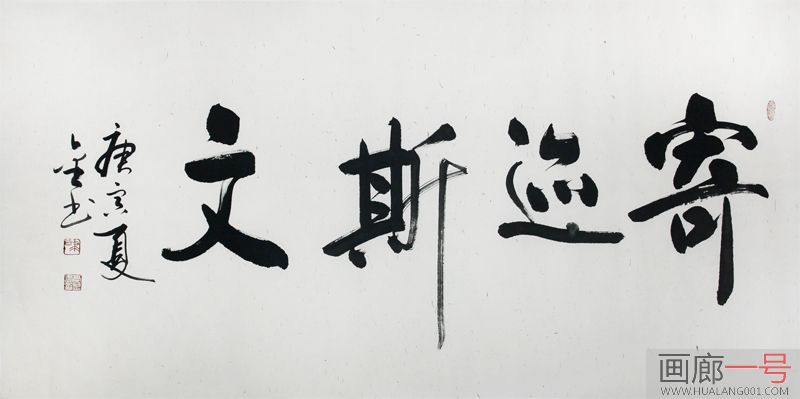 寄迹斯文
庚寅夏
书
画廊一号
WWW.HUALANG001.COM